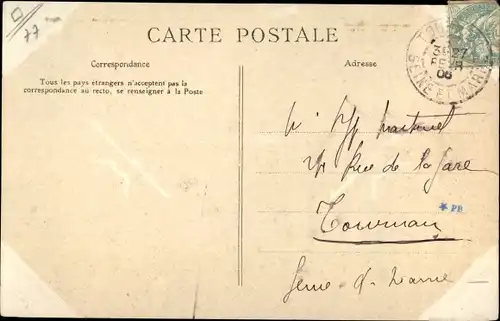 77
CARTE POSTALE
Correspondance
Adresse
Tous les pays étrangers n'acceptent pas la
correspondance au recto, se renseigner à la Poste
27
06
SEINE ET MARNE
Rue de la Gare
* PB
Tournan
Seine-et-Marne